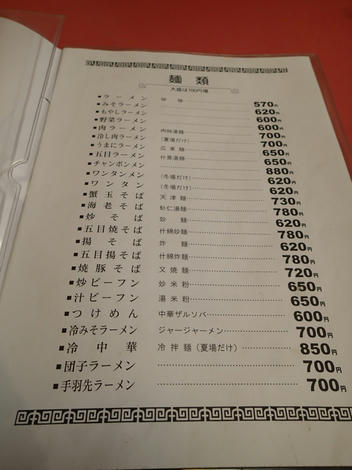 麺類
大盛は100円増
ラーメン 570円
みそラーメン 620円
もやしラーメン 600円
野菜ラーメン 600円
肉ラーメン 肉絲湯麺 700円
冷し肉ラーメン (夏場だけ) 700円
うまにラーメン 広東麺 650円
五目ラーメン 什景湯麺 650円
チャンポンメン 880円
ワンタンメン (冬場だけ) 620円
ワンタン (冬場だけ) 620円
蟹玉そば 天津麺 730円
海老そば 蝦仁湯麺 780円
炒そば 炒麺 620円
五目焼そば 什錦炒麺 780円
揚そば 炸麺 620円
五目揚そば 什錦炸麺 780円
焼豚そば 叉焼麺 720円
炒ビーフン 炒米粉 650円
汁ビーフン 湯米粉 650円
つけめん 中華ザルソバ 600円
冷みそラーメン ジャージャーメン 700円
冷中華 冷拌麺(夏場だけ) 850円
団子ラーメン 700円
手羽先ラーメン 700円